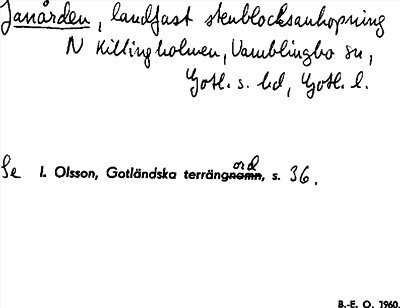 Janården, landfast stenblocksanhopning
N Killingholmen, Vamblingbo sn,
Gotl. s. hd, Gotl. l.
Se I. Olsson, Gotländska terrängord, s. 36.
B.-E. O. 1960.